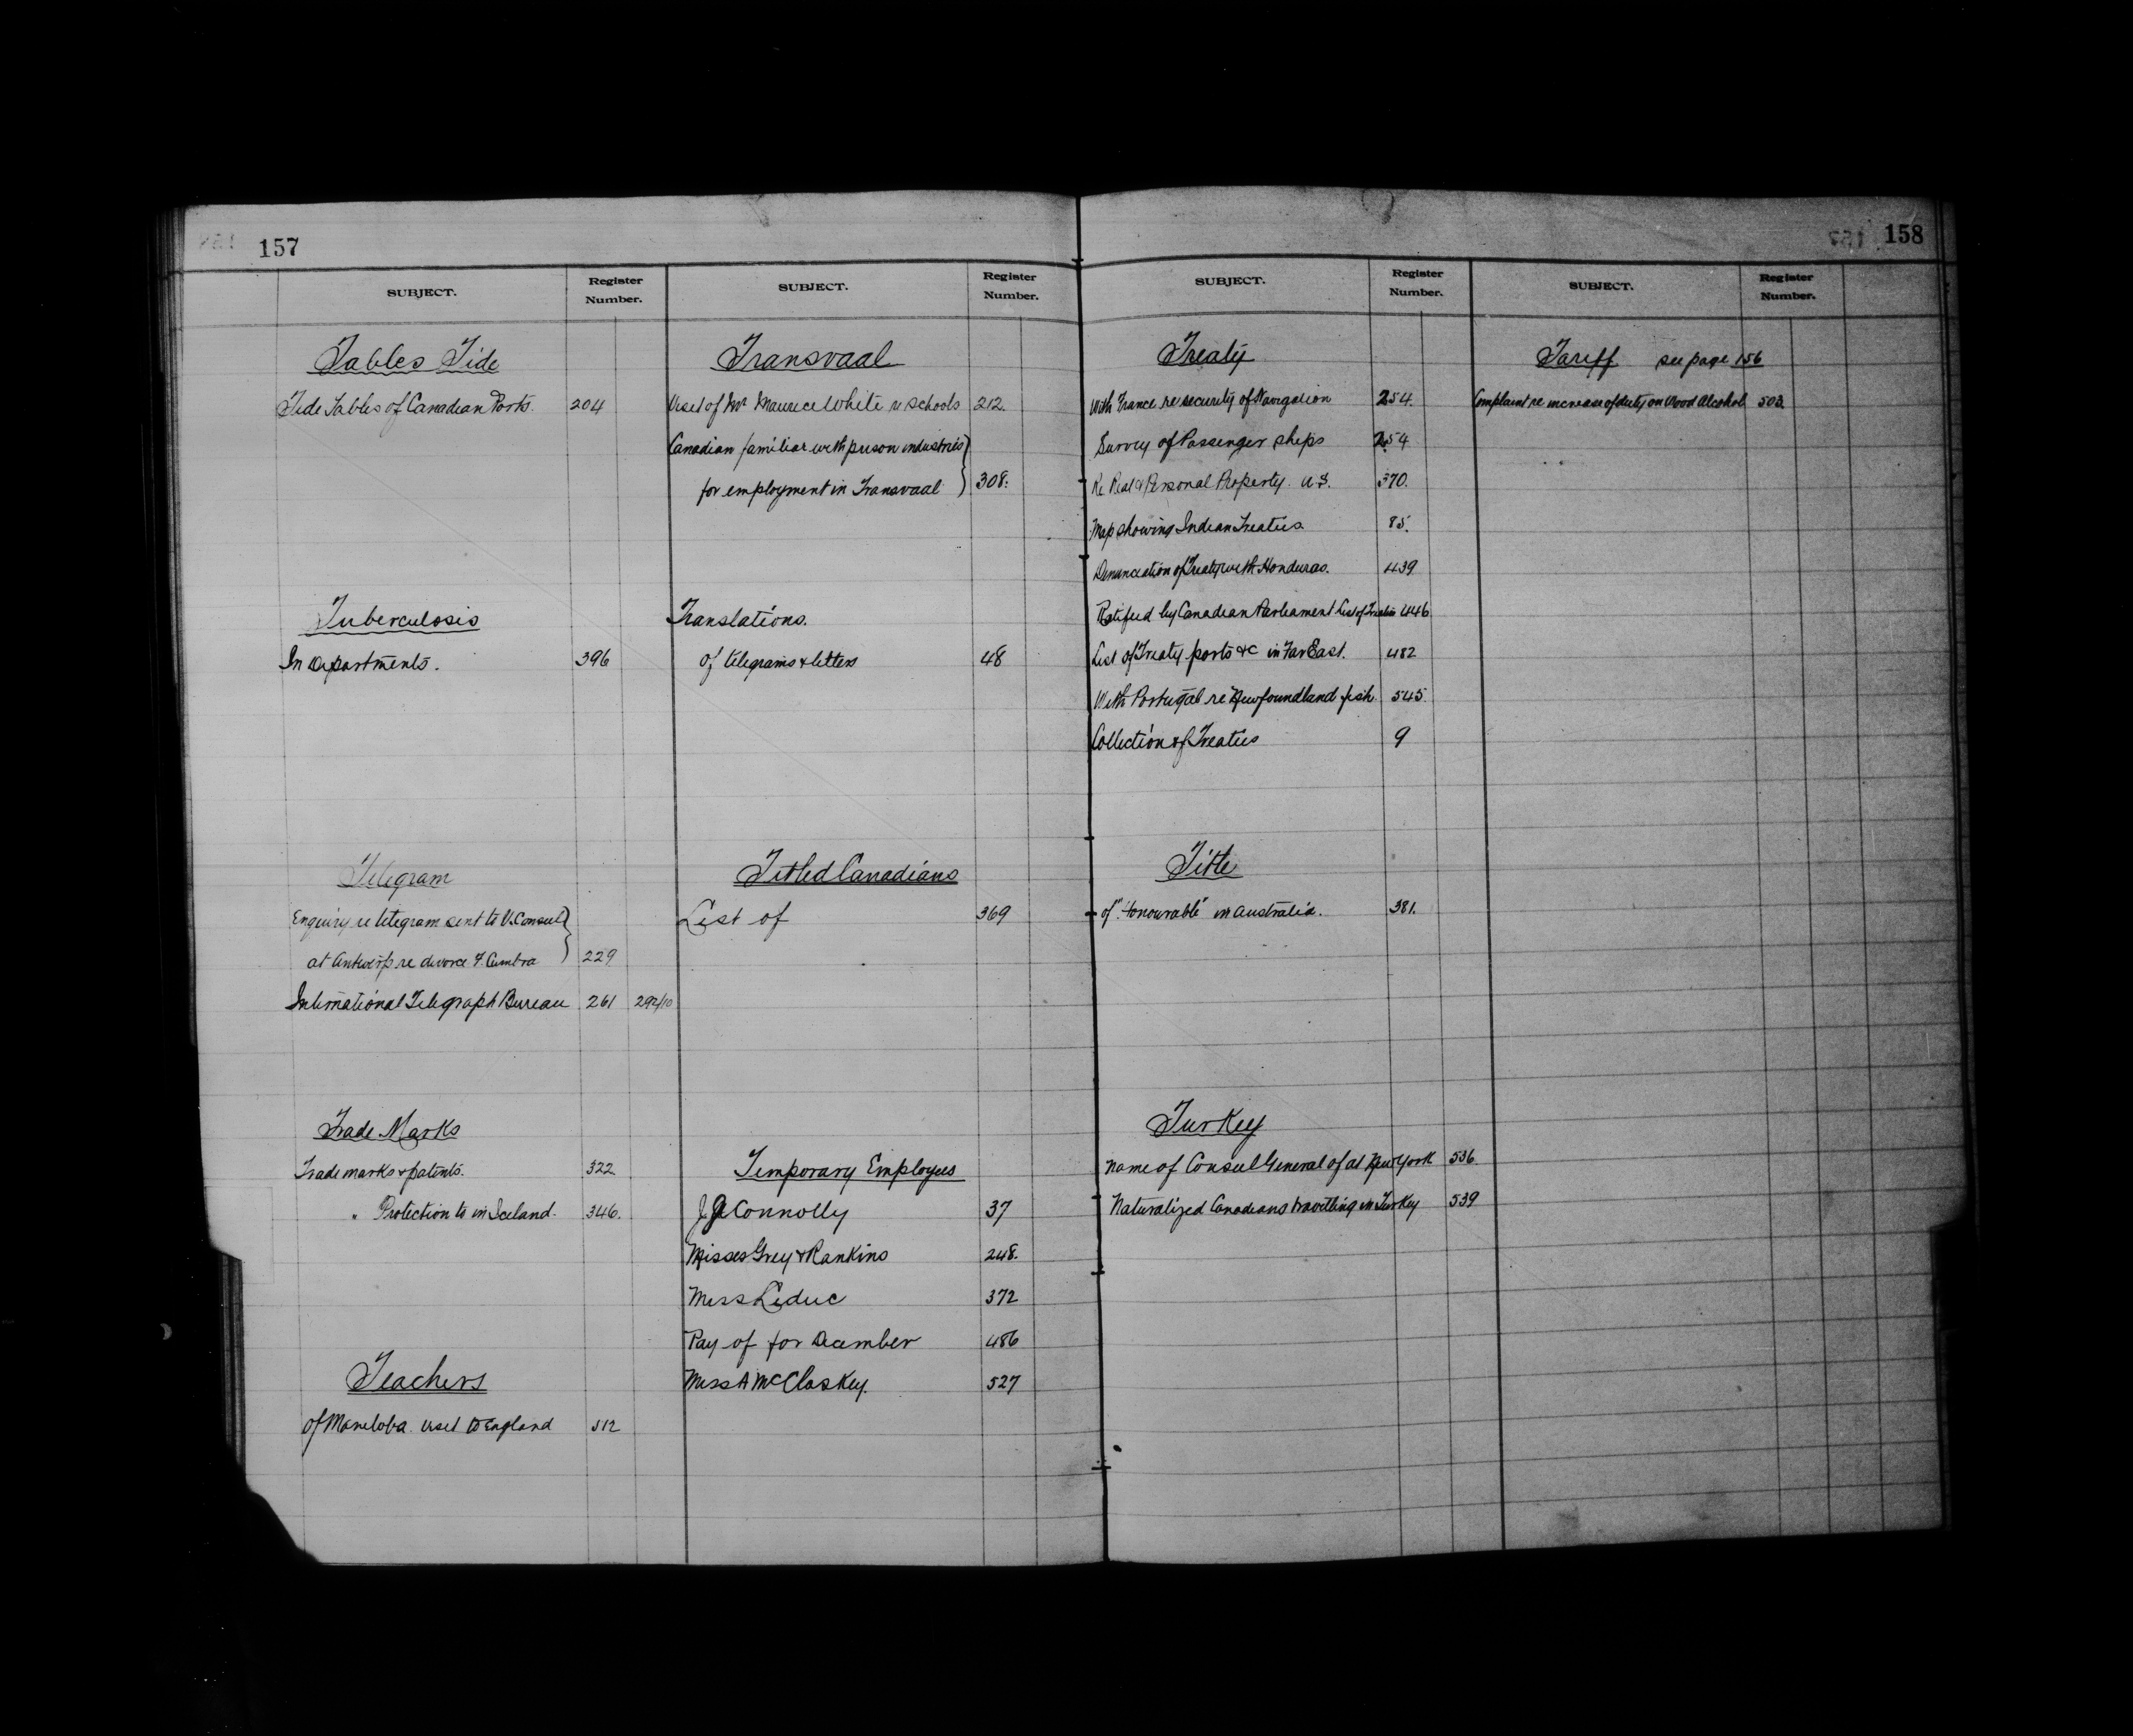 157
SUBJECT.
Register
Number.
Tables Tide
Tide Tables of Canadian Ports. 204
Tuberculosis
In Departments. 396
Telegram
Enquiry re telegram sent to V. Consul
at Antwerp re divorce F. Cumbra 229
International Telegraph Bureau 261 292/10
Trade Marks
Trade marks & patents. 322
" Protection to in Iceland. 346.
Teachers
Of Manitoba visit to England 512
SUBJECT.
Register
Number.
Transvaal
Visit of Mr Maurice White re schools 212.
Canadian familiar with prison industries
for employment in Transvaal 308.
Translations.
Of telegrams & letters 48
Titled Canadians
List of 369
Temporary Employees
J. Connolly 37
Misses Grey & Rankins 248.
Miss Leduc 372
Pay of for December 486
Miss A McCloskey. 527
158
SUBJECT.
Register
Number.
Treaty
With France re security of Navigation 254.
Survey of Passenger ships 254
Re Real & Personal Property. U.S. 370.
Map showing Indian Treaties 85.
Denunciation of Treaty with Honduras. 439
Ratified by Canadian Parliament List of Treaties 446
List of Treaty ports &c in Far East. 482
With Portugal re Newfoundland fish. 545.
Collection of Treaties 9
Title
of "Honourable" in Australia. 381.
Turkey
Name of Consul General of at New York 536.
Naturalized Canadians travelling in Turkey 539
SUBJECT.
Register
Number.
Tariff see page 156
Complaint re increase of duty on Wood Alcohol 503.